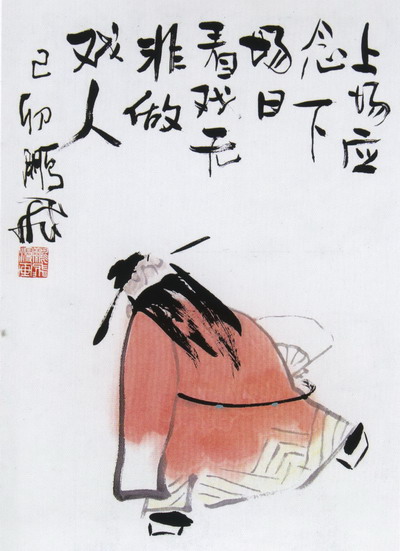 上场应
念下
场日
看戏无
非做
戏人
己卯鹏飞